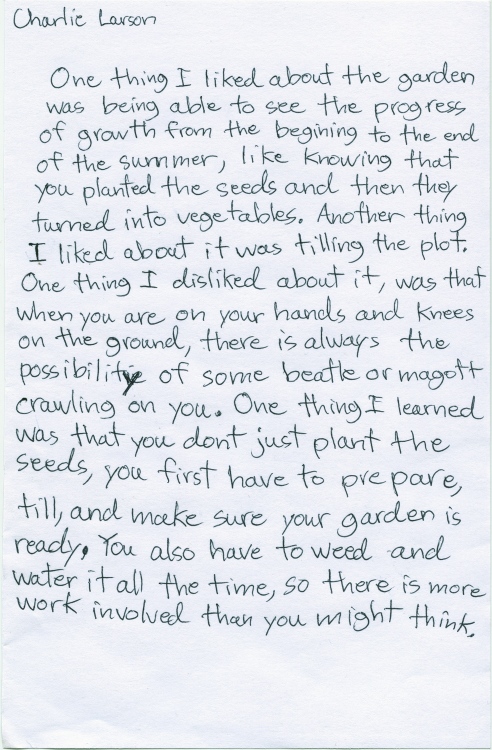 Charlie Larson
One thing I liked about the garden
was being able to see the progress
of growth from the begining to the end
of the summer, like knowing that
you planted the seeds and then they
turned into vegetables. Another thing
I liked about it was tilling the plot.
One thing I disliked about it, was that
when you are on your hands and knees
on the ground, there is always the
possibility of some beatle or magott
crawling on you. One thing I learned
was that you dont just plant the
seeds, you first have to prepare,
till, and make sure your garden is
ready. You also have to weed and
water it all the time, so there is more
work involved than you might think.